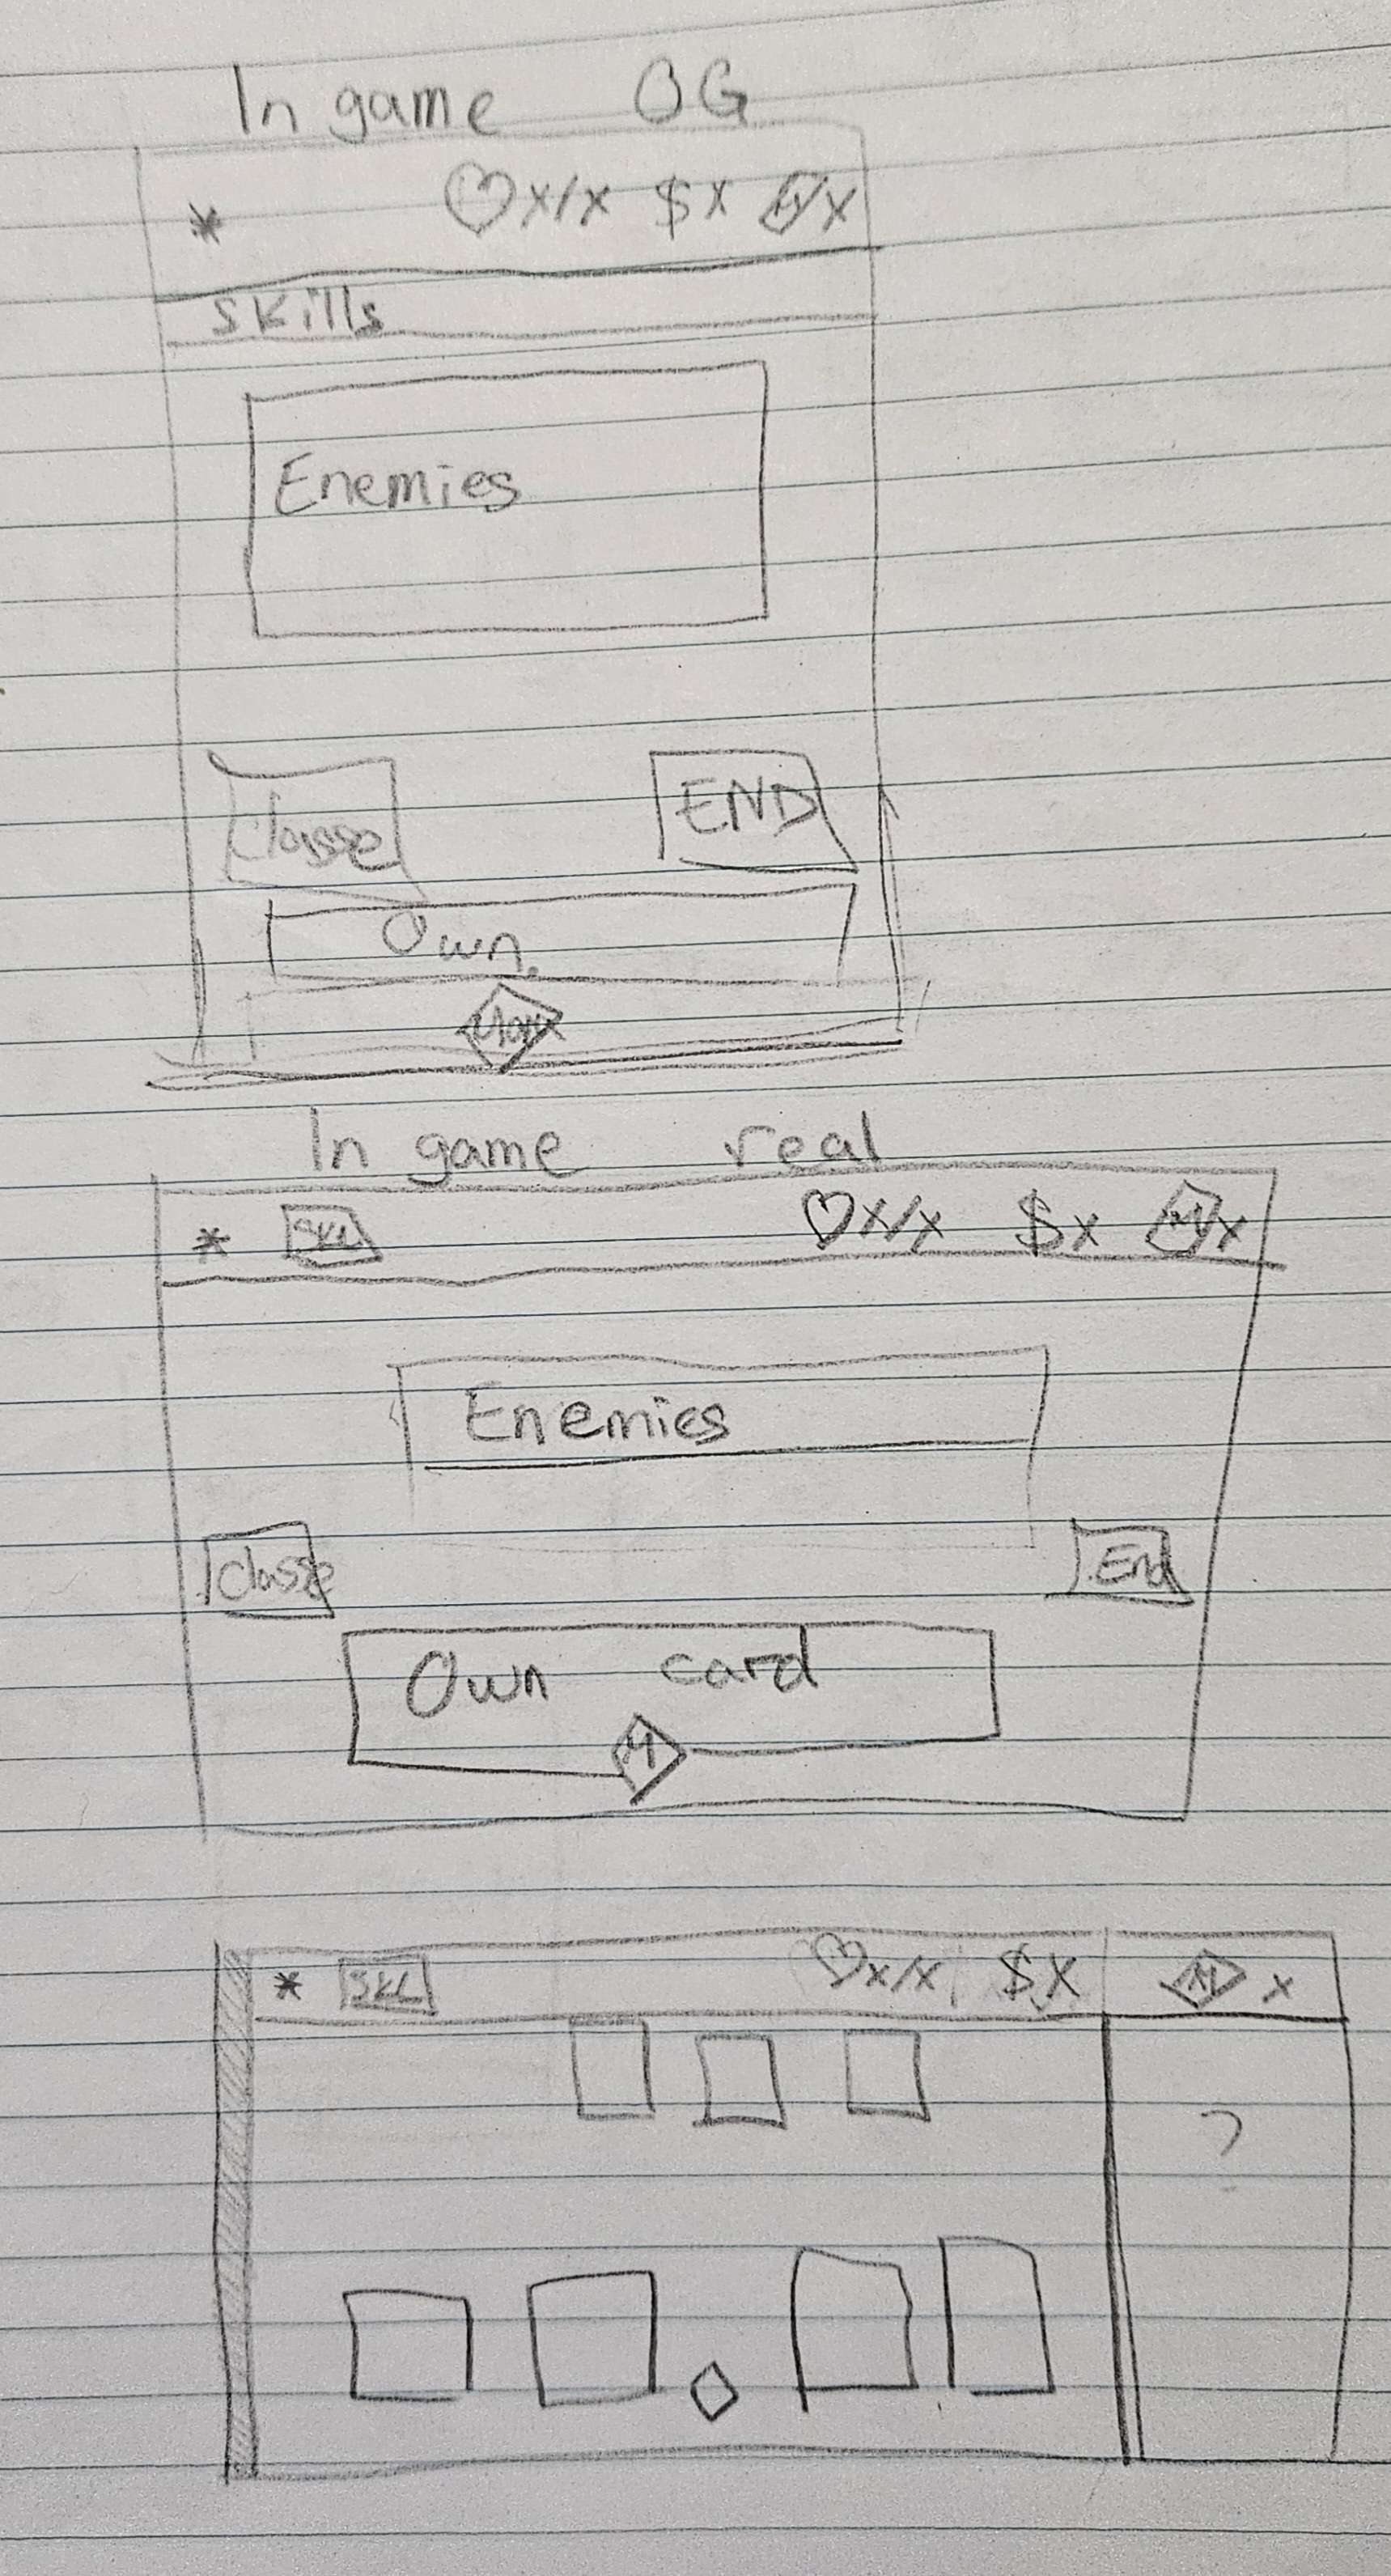 In game OG
* ♡x/x $x M x
skills
Enemies
Classe END
Own.
In game real
* SKL ♡x/x $x M x
Enemies
Classe End
Own card
M
* SKL ♡x/x $x M x
?